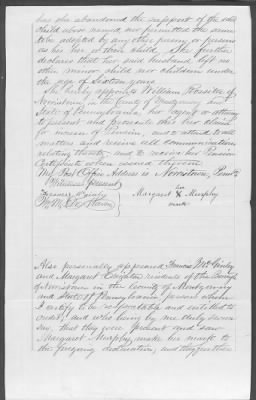 has she abandoned the support of the said
child above named, nor permitted the same
to be adopted by any other person or persons
as his her or their child. She further
declares that her said husband left no
other minor child nor children under
the age of Sixteen years
She hereby appoints William Forsythe of
Norristown, in the County of Montgomery and
State of Pennsylvania, her agent or attorney
to present and prosecute this her claim
for increase of Pension, and to attend to all
matters and receive all communication
relating thereto, and to receive her Pension
Certificate when issued thereon.
My Post Office Address is Norristown, Penna
Witnesses present
Margaret X Murphy
her
mark
Also personally appeared Francis
and Margaret residents of the Borough
of Norristown in the County of Montgomery
and State of Pennsylvania, persons whom
I certify to be respectable and entitled to
credit, and who being by me duly sworn
say, that they were present and saw
Margaret Murphy, make her mark to
the foregoing declaration, and they further